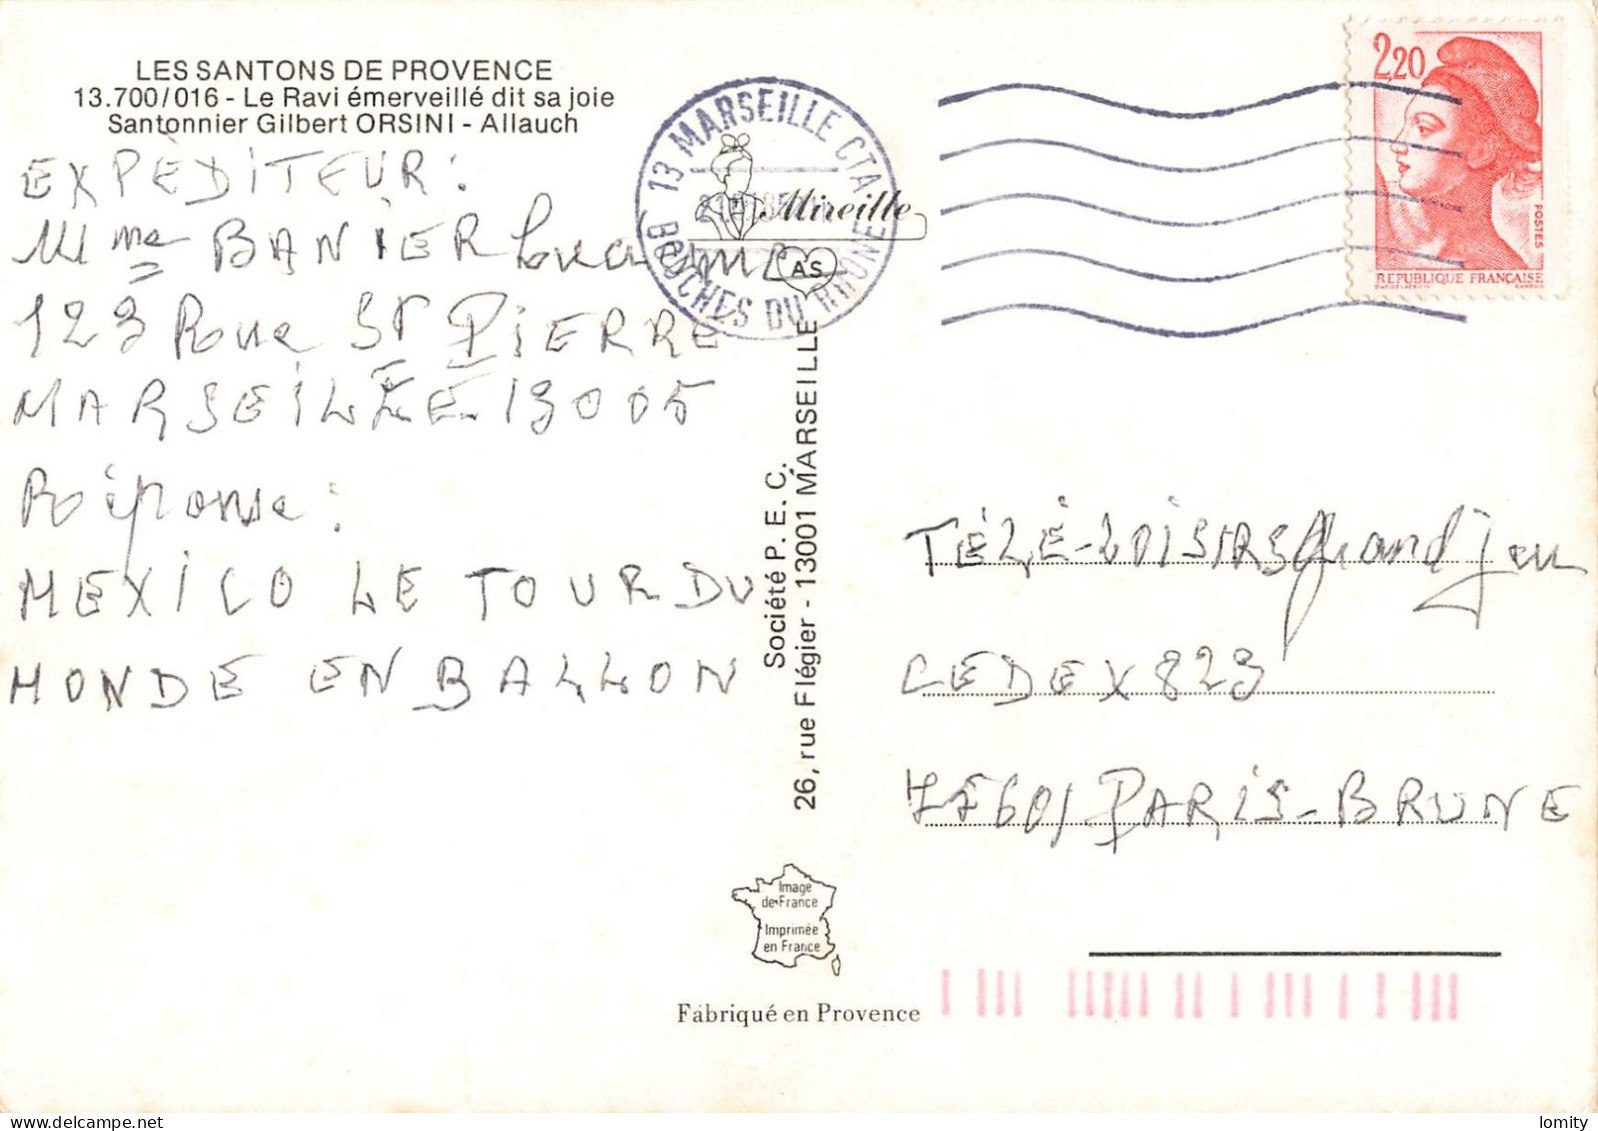 LES SANTONS DE PROVENCE
13.700/016 - Le Ravi émerveillé dit sa joie
Santonnier Gilbert ORSINI - Allauch
EXPÈDITEUR :
Mme BANIER
123 Roue ST PIERRE
MARSEILLE 13005
Réponse :
MEXICO LE TOUR DU
MONDE EN BALLON
13 MARSEILLE CTA
BOUCHES DU RHONE
Mireille
AS
Société P. E. C.
26, rue Flégier - 13001 MARSEILLE
2,20
POSTES
REPUBLIQUE FRANÇAISE
TÉLÉ-LOISIRS Grand Jeu
CEDEX 823
75601 PARIS-BRUNE
Image
de France
Imprimée
en France
Fabriqué en Provence
lomity